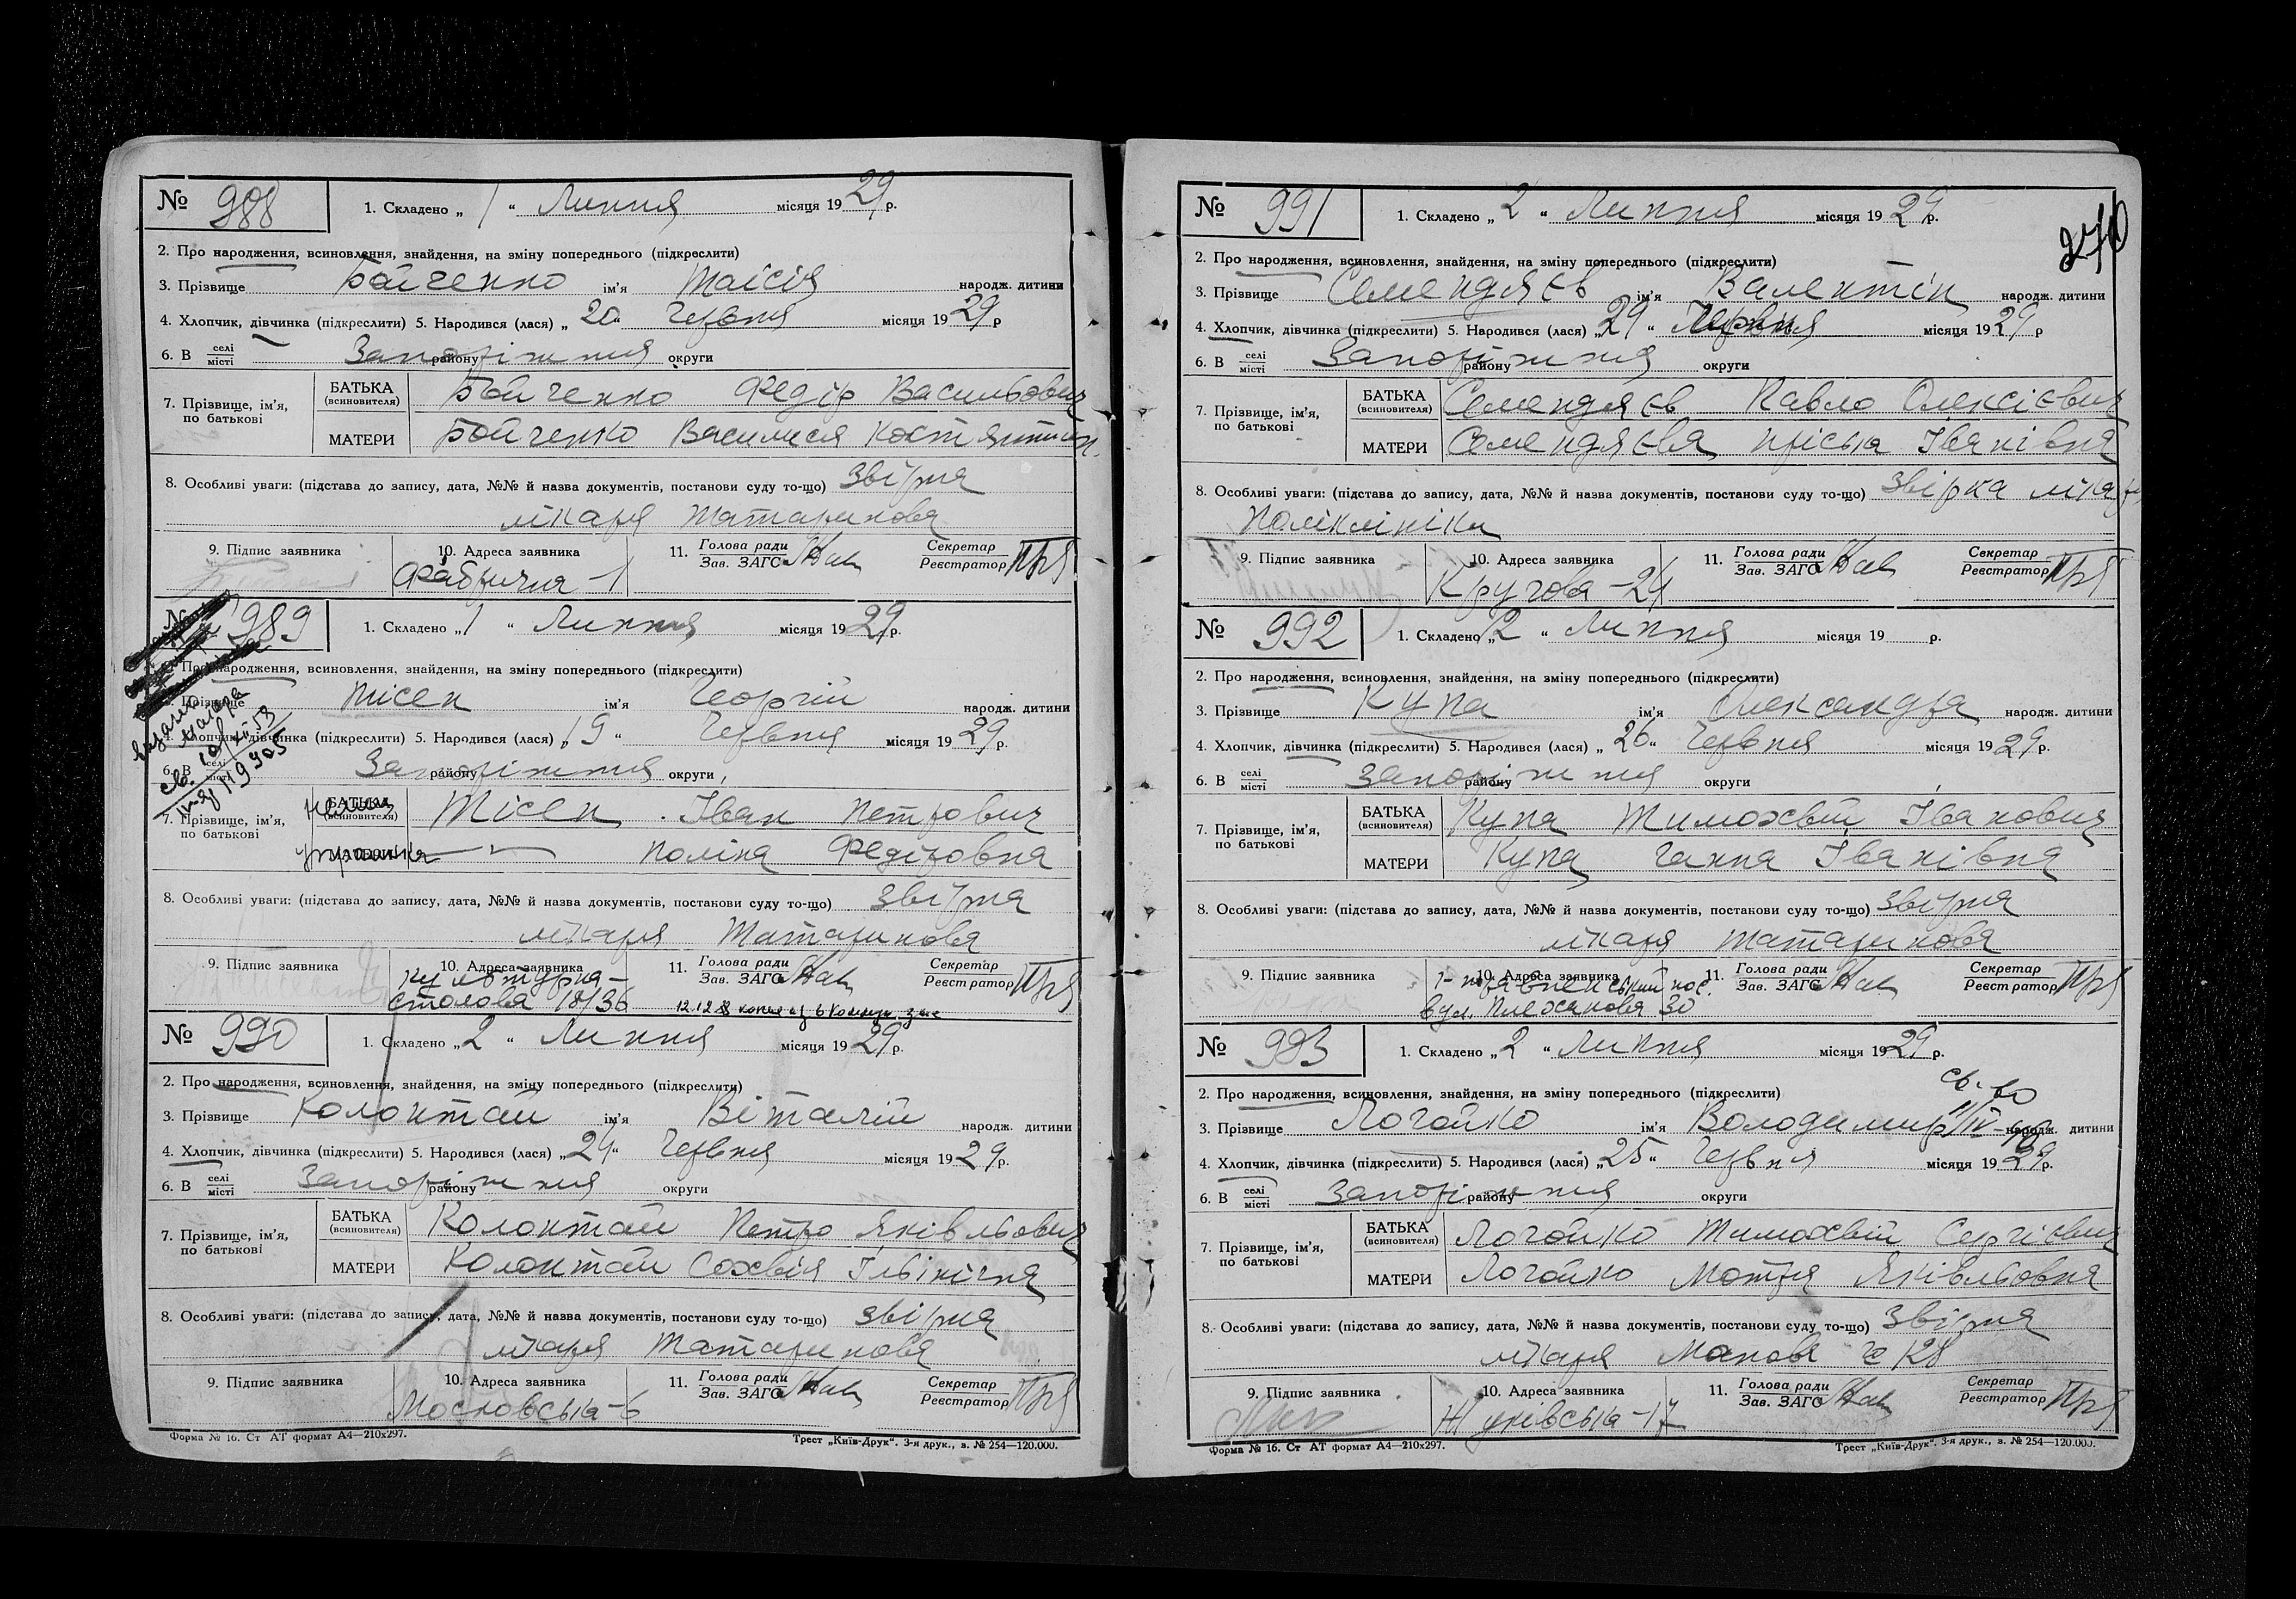 № 988 1. Складено „ 1 “ Липня місяця 1929 р.
2. Про народження, всиновлення, знайдення, на зміну попереднього (підкреслити)
3. Прізвище Бойченко ім'я Таісія народж. дитини
4. Хлопчик, дівчинка (підкреслити) 5. Народився (лася) „ 20 “ Червня місяця 1929 р
6. В селі місті Запоріжжя району округи
7. Прізвище, ім'я, по батькові
БАТЬКА (всиновителя) Бойченко Федір Васильович
МАТЕРИ Бойченко Василися Костянтин.
8. Особливі уваги: (підстава до запису, дата, №№ й назва документів, постанови суду то-що) Звірка
лікаря Татаринова
9. Підпис заявника 10. Адреса заявника 11. Голова ради Зав. ЗАГС Секретар Реєстратор
Фабрична – 1
№ 989 1. Складено „ 1 “ Липня місяця 1929 р.
2. Про народження, всиновлення, знайдення, на зміну попереднього (підкреслити)
3. Прізвище Тісен ім'я Георгій народж. дитини
4. Хлопчик, дівчинка (підкреслити) 5. Народився (лася) „ 19 “ Червня місяця 1929 р.
6. В селі місті Запоріжжя району округи
7. Прізвище, ім'я, по батькові
БАТЬКА (всиновителя) Тісен Іван Петрович
МАТЕРИ — " — Поліна Федіровна
8. Особливі уваги: (підстава до запису, дата, №№ й назва документів, постанови суду то-що) Звірка
лікаря Татаринова
9. Підпис заявника 10. Адреса заявника 11. Голова ради Зав. ЗАГС Секретар Реєстратор
Культурна –
столова 18/36
№ 990 1. Складено „ 2 “ Липня місяця 1929 р.
2. Про народження, всиновлення, знайдення, на зміну попереднього (підкреслити)
3. Прізвище Колонтай ім'я Віталій народж. дитини
4. Хлопчик, дівчинка (підкреслити) 5. Народився (лася) „ 24 “ Червня місяця 1929 р.
6. В селі місті Запоріжжя району округи
7. Прізвище, ім'я, по батькові
БАТЬКА (всиновителя) Колонтай Петро Яківльович
МАТЕРИ Колонтай Софвія Ільінічна
8. Особливі уваги: (підстава до запису, дата, №№ й назва документів, постанови суду то-що) звірка
лікаря Татаринова
9. Підпис заявника 10. Адреса заявника 11. Голова ради Зав. ЗАГС Секретар Реєстратор
Московська – 6
Форма № 16. Ст АТ формат А4—210х297. Трест „Київ-Друк“. 3-я друк., з. № 254—120.000.
270
№ 991 1. Складено „ 2 “ Липня місяця 1929 р.
2. Про народження, всиновлення, знайдення, на зміну попереднього (підкреслити)
3. Прізвище Семендяєв ім'я Валентін народж. дитини
4. Хлопчик, дівчинка (підкреслити) 5. Народився (лася) „ 29 “ Червня місяця 1929 р
6. В селі місті Запоріжжя району округи
7. Прізвище, ім'я, по батькові
БАТЬКА (всиновителя) Семендяєв Павло Олексієвич
МАТЕРИ Семендяєва Пріська Іванівна
8. Особливі уваги: (підстава до запису, дата, №№ й назва документів, постанови суду то-що) Звірка лікаря
Поліклініки
9. Підпис заявника 10. Адреса заявника 11. Голова ради Зав. ЗАГС Секретар Реєстратор
Кругова – 24
№ 992 1. Складено „ 2 “ Липня місяця 19 р.
2. Про народження, всиновлення, знайдення, на зміну попереднього (підкреслити)
3. Прізвище Купа ім'я Олександра народж. дитини
4. Хлопчик, дівчинка (підкреслити) 5. Народився (лася) „ 26 “ Червня місяця 1929 р.
6. В селі місті Запоріжжя району округи
7. Прізвище, ім'я, по батькові
БАТЬКА (всиновителя) Купа Тимохвій Іванович
МАТЕРИ Купа Ганна Іванівна
8. Особливі уваги: (підстава до запису, дата, №№ й назва документів, постанови суду то-що) Звірка
лікаря Татаринова
9. Підпис заявника 10. Адреса заявника 11. Голова ради Зав. ЗАГС Секретар Реєстратор
вул. Плеханова 30
№ 993 1. Складено „ 2 “ Липня місяця 1929 р.
2. Про народження, всиновлення, знайдення, на зміну попереднього (підкреслити)
3. Прізвище Логойко ім'я Володимир народж. дитини
4. Хлопчик, дівчинка (підкреслити) 5. Народився (лася) „ 25 “ Червня місяця 1929 р.
6. В селі місті Запоріжжя району округи
7. Прізвище, ім'я, по батькові
БАТЬКА (всиновителя) Логойко Тимохвій Сергієвич
МАТЕРИ Логойко Мотря Яківльовна
8. Особливі уваги: (підстава до запису, дата, №№ й назва документів, постанови суду то-що) Звірка
лікаря
9. Підпис заявника 10. Адреса заявника 11. Голова ради Зав. ЗАГС Секретар Реєстратор
Жуківська – 17
Форма № 16. Ст АТ формат А4—210х297. Трест „Київ-Друк“. 3-я друк., з. № 254—120.000.